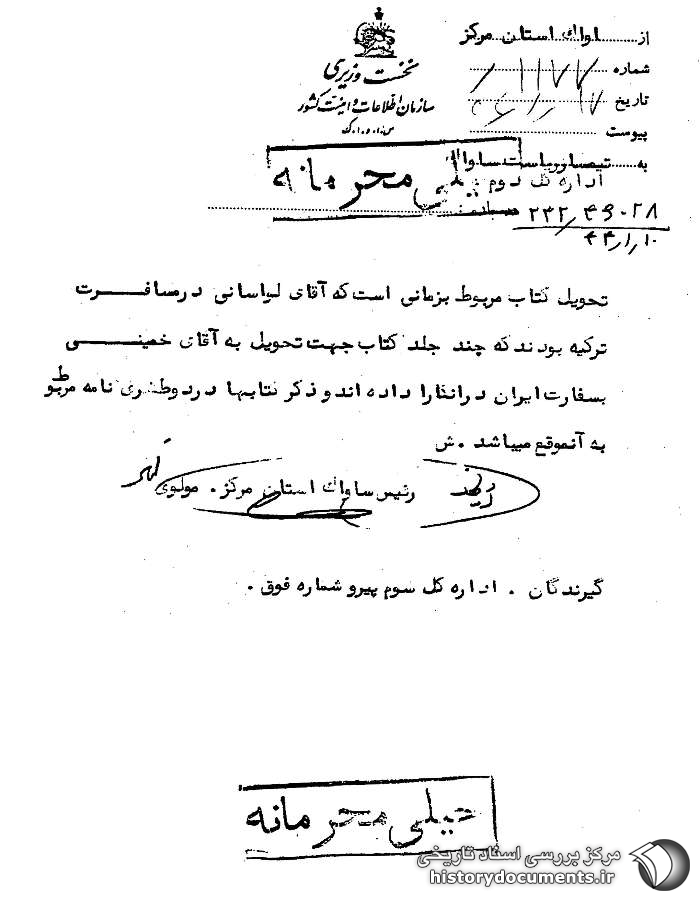 از ساواك استان مركز
نخست وزیری
شماره ۱۱۷۷ /
سازمان اطلاعات و امنیت کشور
تاریخ
س.ا.و.ا.ک
پیوست
به تیمسار ریاست ساواك
اداره کل دوم
خیلی محرمانه
۲۳۲/۴۹۰۲۸
۴۴/۱/۱۰
تحویل کتاب مربوط بزمانی است که آقای لواسانی در مسافرت
ترکیه بودند که چند جلد کتاب جهت تحویل به آقای خمینی
بسفارت ایران در انکارا داده اند و ذکر کتابها در دو طغری نامه مربوط
به آنموقع میباشد . ش
رئیس ساواك استان مرکز . مولوی
گیرندگان . اداره کل سوم پیرو شماره فوق .
خیلی محرمانه
مرکز بررسی اسناد تاریخی
historydocuments.ir